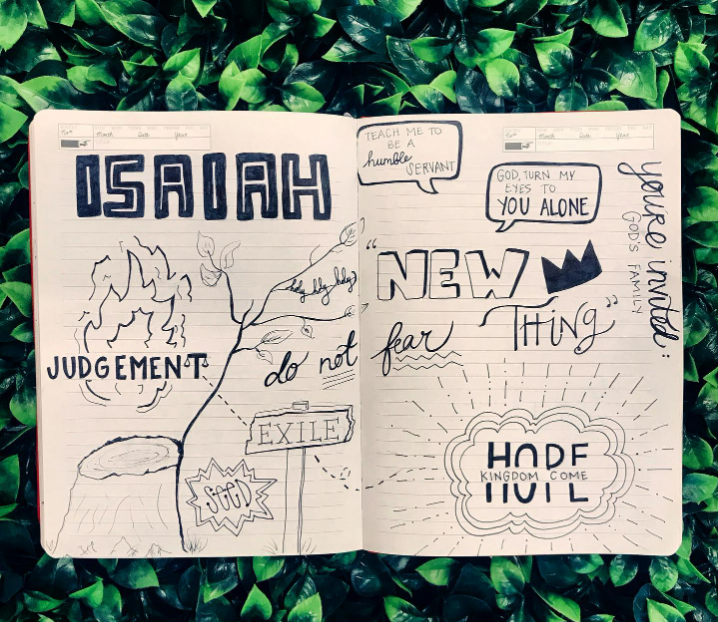 ISAIAH
holy holy holy
JUDGEMENT
do not
EXILE
SEED
TEACH ME TO
BE A
humble
SERVANT
GOD, TURN MY
EYES TO
YOU ALONE
"NEW
THING"
fear
HOPE
KINGDOM COME
you're invited:
GOD'S FAMILY